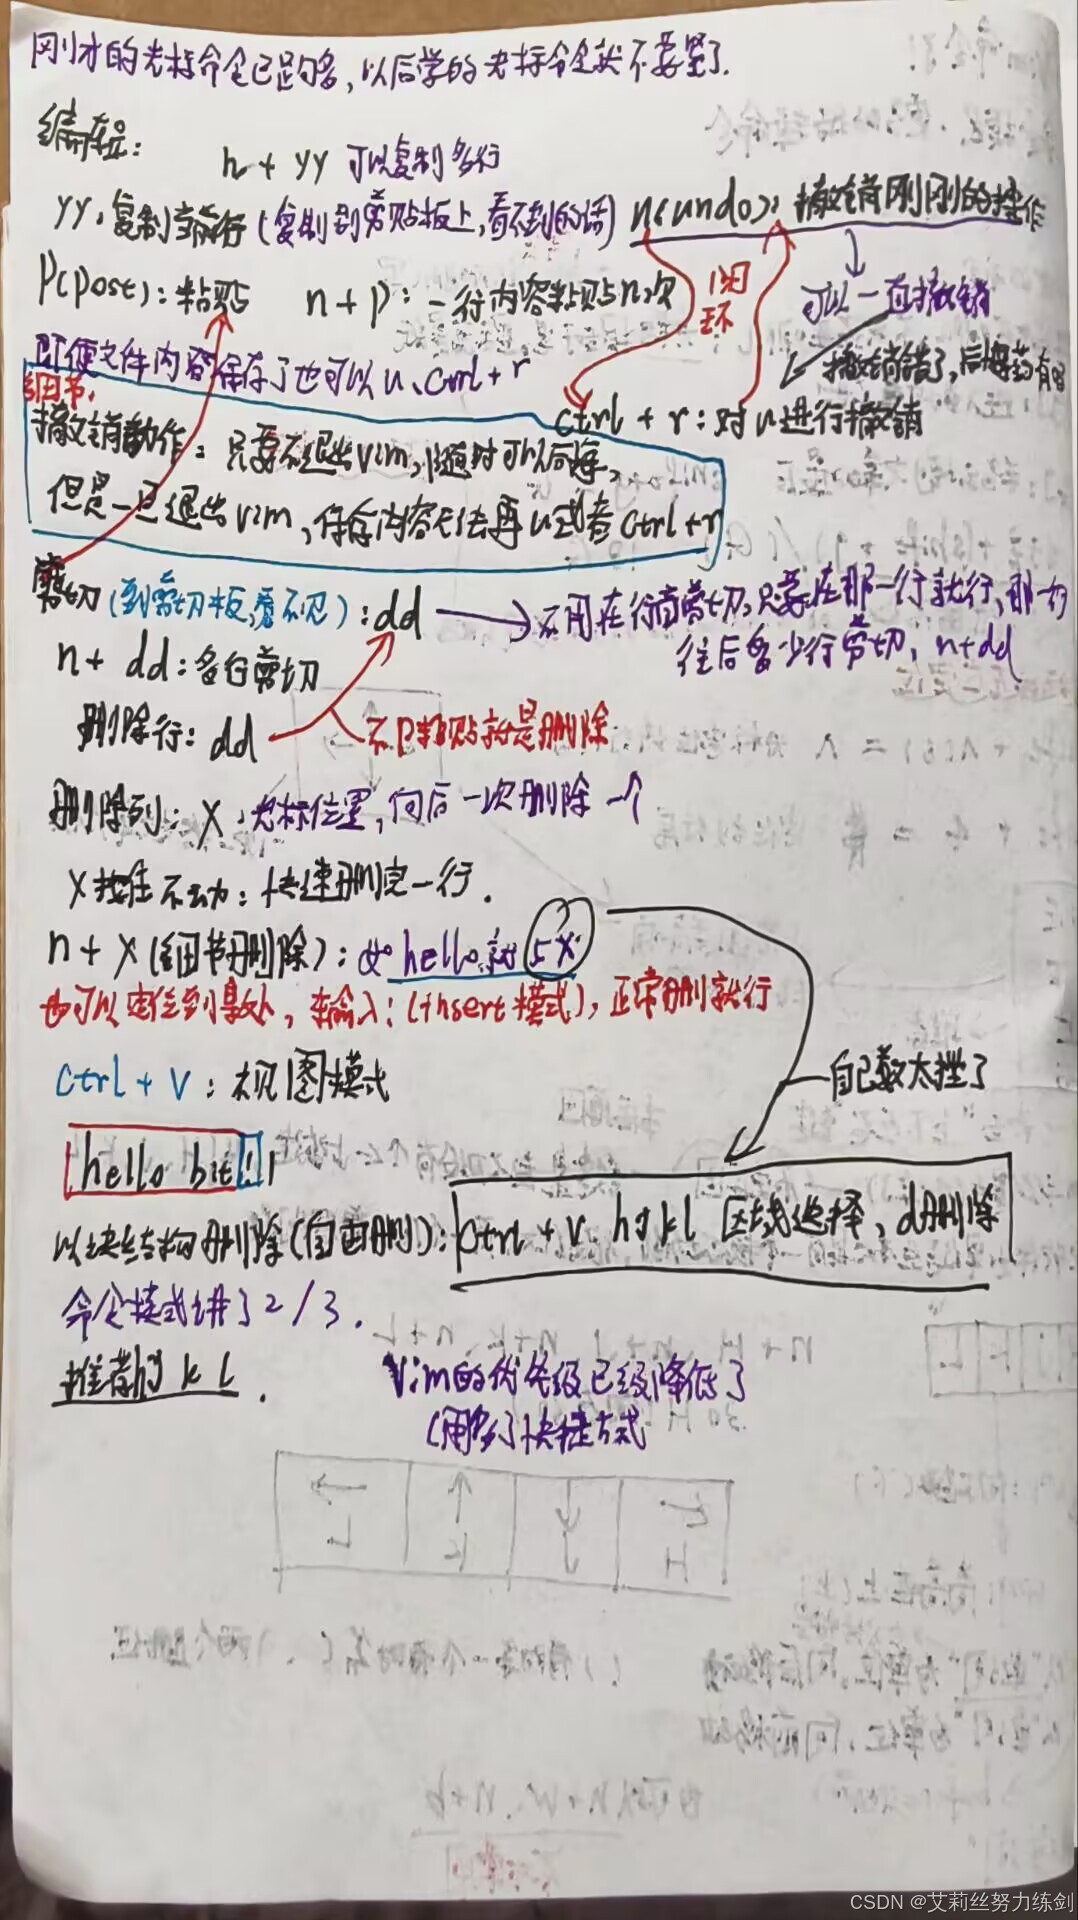 刚才的光标命令已足够多，以后学的光标命令就不要紧了.
编辑:
n + yy 可以复制多行
yy: 复制当前行 (复制到剪贴板上,看不到的话)
u(undo): 撤销刚刚的操作
P(post): 粘贴
n + p: 一行内容粘贴n次
闭环
可以一直撤销
即便文件内容保存了也可以 u、Ctrl + r
撤销错了,后悔药有的
细节.
Ctrl + r: 对 u 进行撤销
撤销动作: 只要不退出vim,随时可以后悔,
但是一旦退出vim,保存内容无法再u或者Ctrl+r
剪切(到剪切板,看不见): dd
不用在行首剪切,只要在那一行就行,那一行
往后多少行剪切, n+dd
n + dd: 多行剪切
删除行: dd
不p粘贴就是删除
删除列: X: 光标位置,向后一次删除一个
X按住不动: 快速删完一行.
n + X(细节删除): 如 hello 就 5X
也可以定位到某处, 输入i (insert模式), 正常删就行
Ctrl + V: 视图模式
自己数太挫了
hello bit!!
以块结构删除(自由删): Ctrl + V hjkl 区域选择, d删除
命令模式讲了 2/3.
推荐hjkl.
Vim的优先级已经降低了
(用多了快捷方式
CSDN @艾莉丝努力练剑